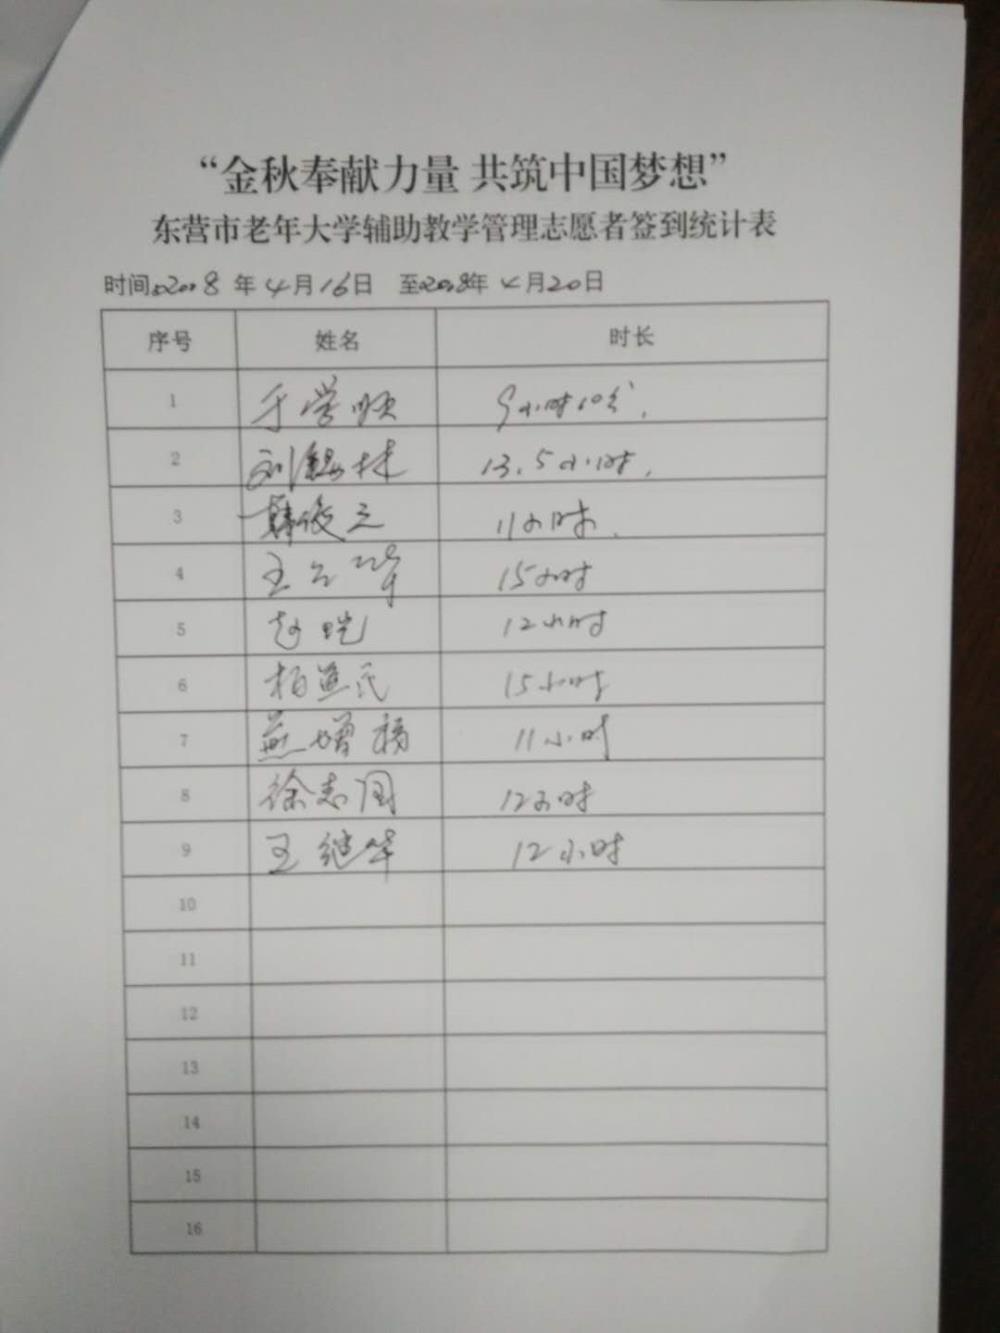 “金秋奉献力量 共筑中国梦想”
东营市老年大学辅助教学管理志愿者签到统计表
时间:2018 年 4月16日 至2018年 4月20日
序号 姓名 时长
1 于学顺 9小时10分.
2 刘锡林 13.5小时.
3 韩俊三 11小时.
4 王 15小时
5 赵 12小时
6 柏 民 15小时
7 燕增 11小时
8 徐志国 12小时
9 王继华 12小时
10
11
12
13
14
15
16